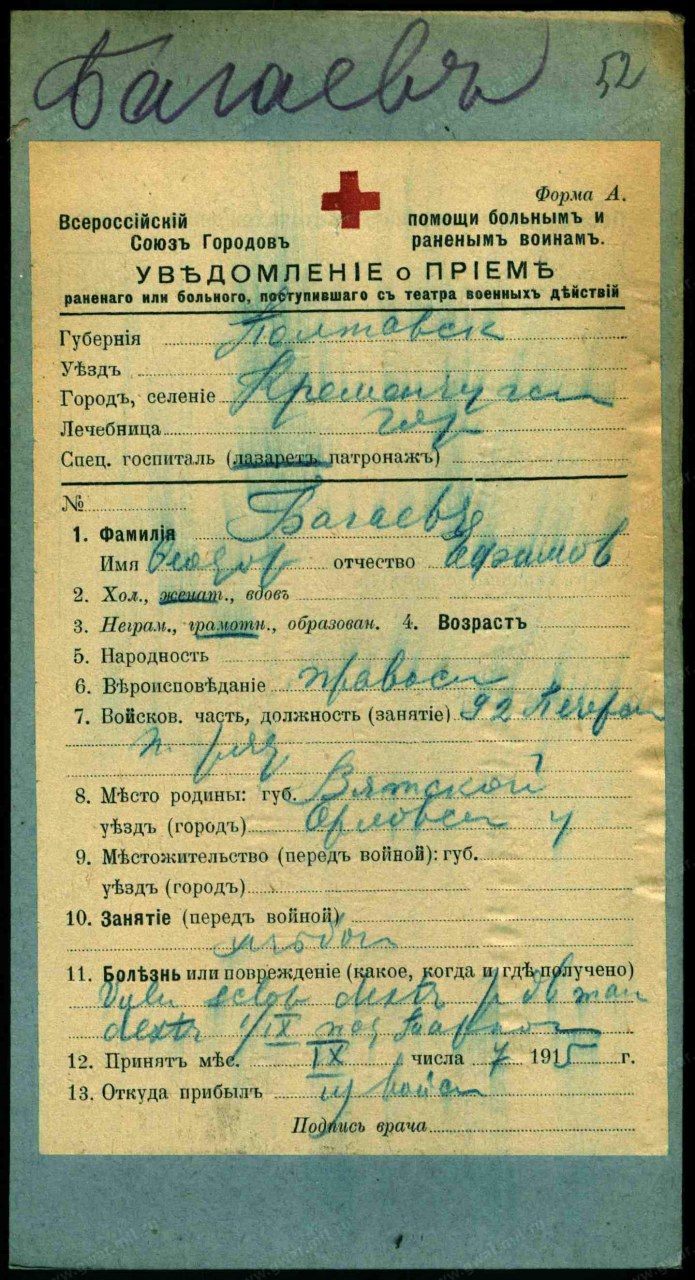 Багаевъ 52
Форма А.
Всероссійскій помощи больнымъ и
Союзъ Городовъ раненымъ воинамъ.
УВѢДОМЛЕНІЕ о ПРІЕМѢ
раненаго или больного, поступившаго съ театра военныхъ дѣйствій
Губернія Полтавск
Уѣздъ
Городъ, селеніе Кременчуг
Лечебница
Спец. госпиталь (лазаретъ патронажъ)
№
1. Фамилія Багаевъ
Имя Федор отчество Ефимов
2. Хол., женат., вдовъ
3. Неграм., грамотн., образован. 4. Возрастъ
5. Народность
6. Вѣроисповѣданіе правосл
7. Войсков. часть, должность (занятіе) 92 Печерск
п. ряд
8. Мѣсто родины: губ. Вятской
уѣздъ (городъ) Орловск у
9. Мѣстожительство (передъ войной): губ.
уѣздъ (городъ)
10. Занятіе (передъ войной)
хлѣбоп
11. Болѣзнь или поврежденіе (какое, когда и гдѣ получено)
Vuln sclop dextr
dextr 1/IX под
12. Принятъ мѣс. IX числа 7 1915 г.
13. Откуда прибылъ
Подпись врача